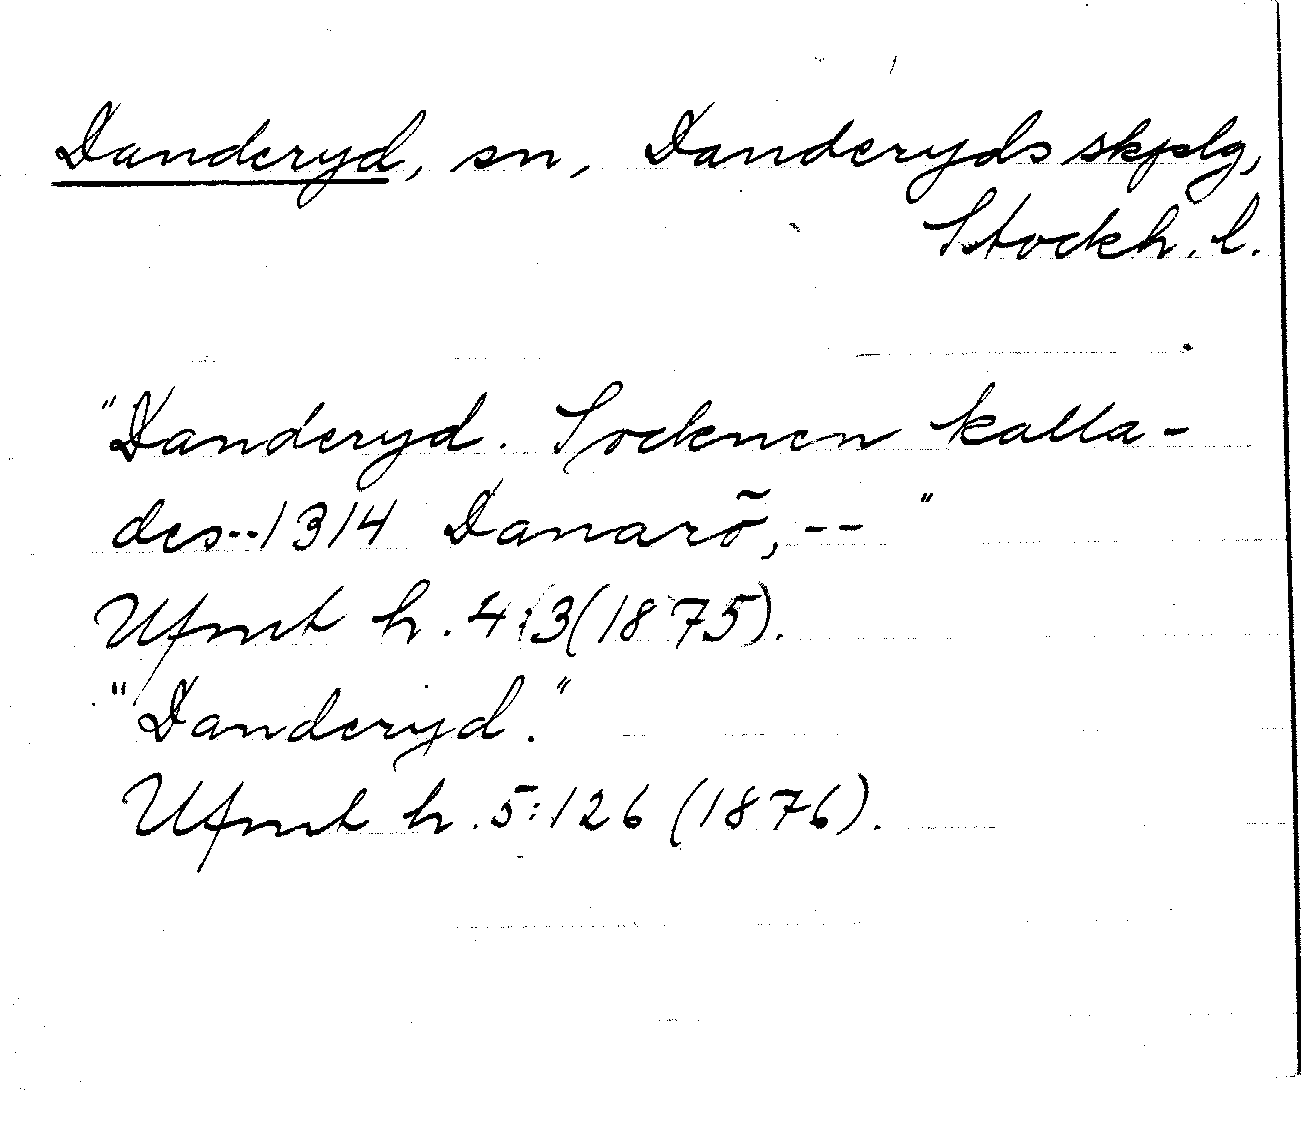 Danderyd, sn, Danderyds skplg,
Stockh. l.
"Danderyd. Socknen kalla-
des--1314 Danarö̃, -- "
Ufmt h. 4:3(1875).
"Danderyd."
Ufmt h. 5:126 (1876).